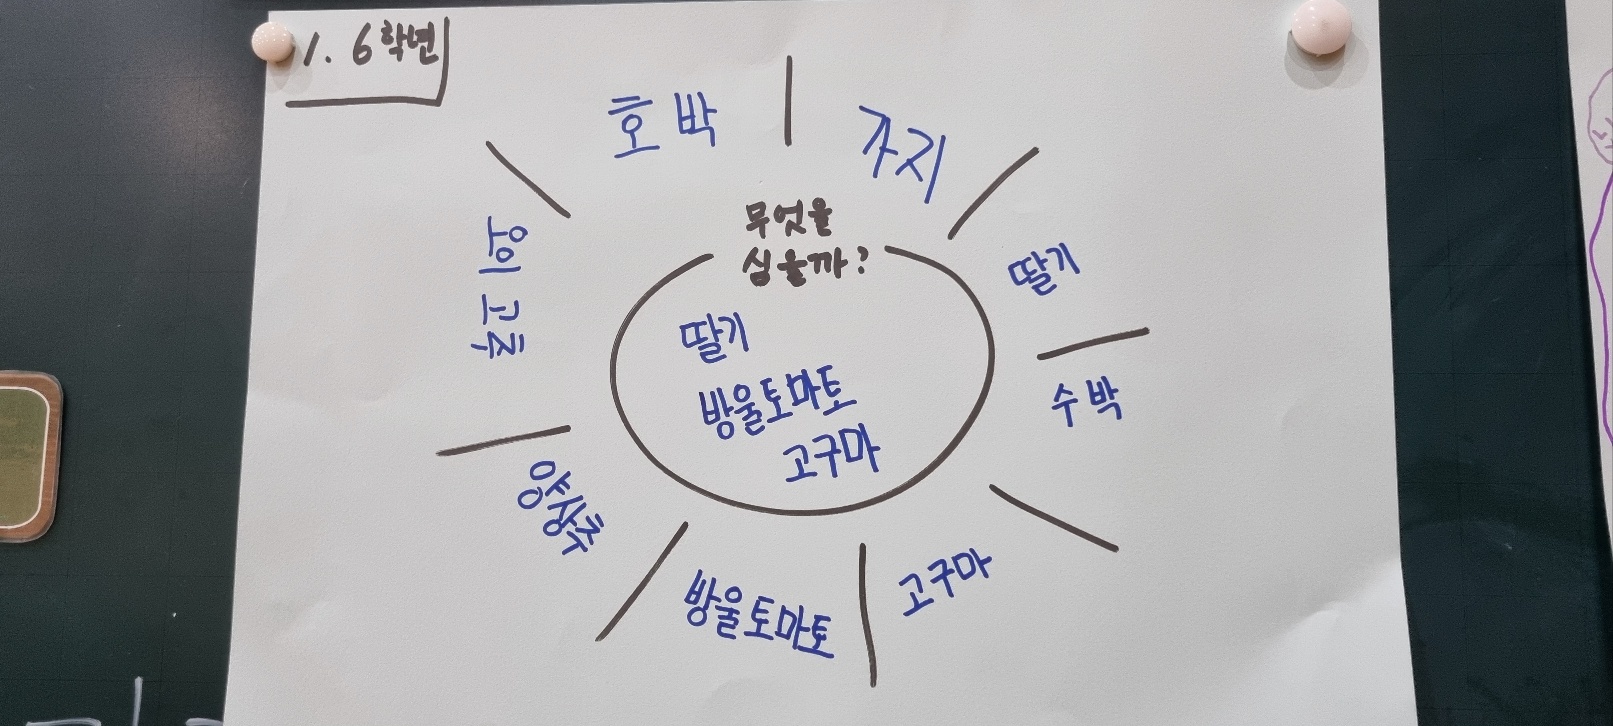 1. 6학년
호박
가지
딸기
수박
고구마
방울토마토
양상추
오이고추
무엇을
심을까?
딸기
방울토마토
고구마